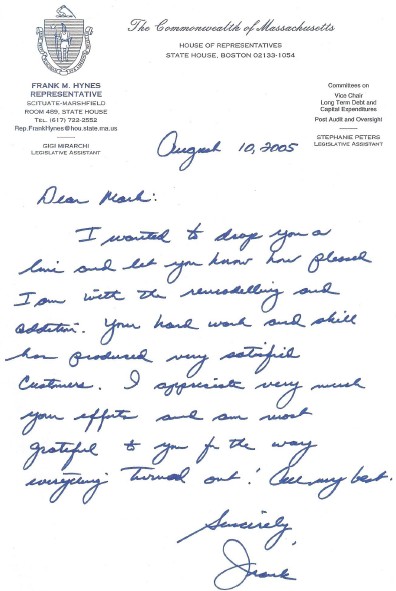 The Commonwealth of Massachusetts
HOUSE OF REPRESENTATIVES
STATE HOUSE, BOSTON 02133-1054
FRANK M. HYNES
REPRESENTATIVE
SCITUATE-MARSHFIELD
ROOM 489, STATE HOUSE
TEL. (617) 722-2552
Rep.FrankHynes@hou.state.ma.us
GIGI MIRARCHI
LEGISLATIVE ASSISTANT
Committees on
Vice Chair
Long Term Debt and
Capital Expenditures
Post Audit and Oversight
STEPHANIE PETERS
LEGISLATIVE ASSISTANT
August 10, 2005
Dear Mark:
I wanted to drop you a
line and let you know how pleased
I am with the remodelling and
addition. Your hard work and skill
has produced very satisfied
customers. I appreciate very much
your efforts and am most
grateful to you for the way
everything turned out! All my best.
Sincerely,
Frank